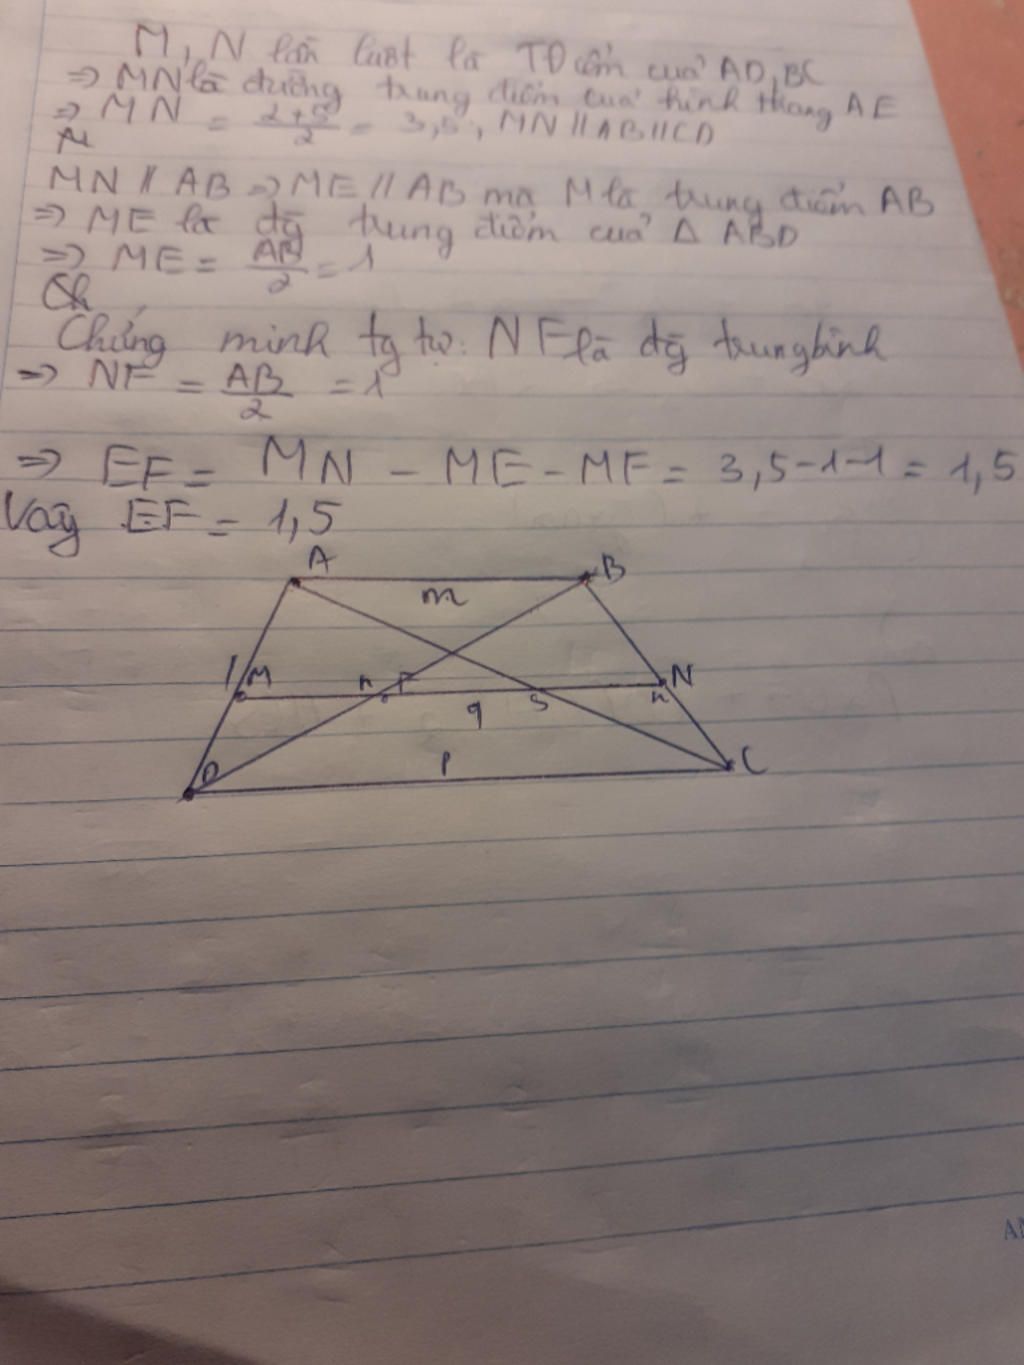 M, N lần lượt là TĐiểm cuả AD, BC
=> MN là đường trung điểm cuả hình thang AE
=> MN = 2+5/2 = 3,5, MN // AB // CD
MN // AB => ME // AB mà M là trung điểm AB
=> ME là đg trung điểm cuả Δ ABD
=> ME = AB/2 = 1
Ch
Chứng minh tg tự: NF là đg trung bình
=> NF = AB/2 = 1
=> EF = MN - ME - MF = 3,5-1-1 = 1,5
Vậy EF = 1,5
A B
m
M n F s n N
q
D P C